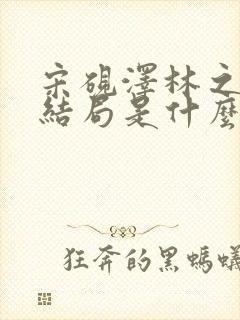 宋砚澤林之
結局是什麼
狂奔的黑螞蟻